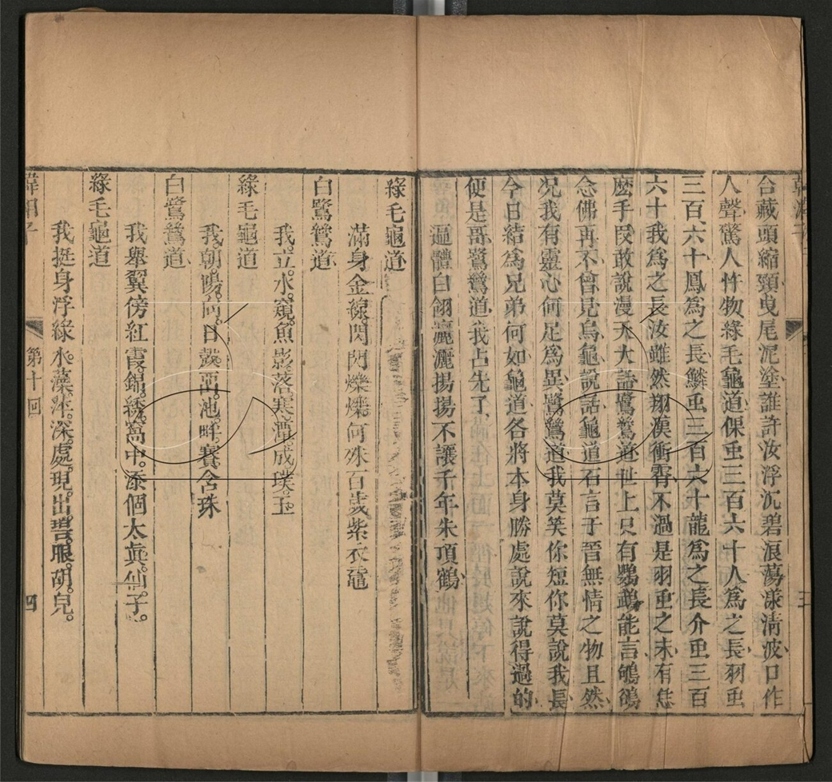 韓湘子
三
台藏頭縮頸曳尾泥塗誰許汝浮沉碧浪蕩漾清波口作
人聲驚人忤物綠毛龜道倮虫三百六十人為之長羽虫
三百六十鳳為之長鱗虫三百六十龍為之長介虫三百
六十我為之長汝雖然翔漢衝霄不過是羽虫之末有恁
麽手叚敢說漫天大話鷺鷥道世上只有鸚鵡能言鴝鵒
念佛再不曾見烏龜說話龜道石言于晋無情之物且然
况我有靈心何足為異鷺鷥道我莫笑你短你莫說我長
今日結為兄弟何如龜道各將本身勝處說來說得過的
便是哥鷺鷥道我占先了
遍體白翎麗灑揚揚不讓千年朱頂鶴
綠毛龜道
滿身金線閃閃爍爍何殊百歲紫衣黿
白鷺鷥道
我立水窺魚影落寒潭成璞玉
綠毛龜道
我朝陽向日殼亞池畔賽含珠
白鷺鷥道
我舉翼傍紅霞錦綉窩中添個太眞仙子
綠毛龜道
我挺身浮綠水藻萍深處現出碧眼胡兒
韓湘子
第十回
四